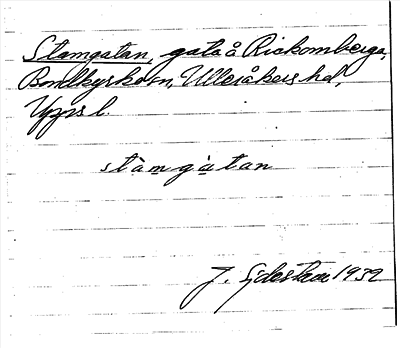 Stamgatan, gata å Rickomberga,
Bondkyrko sn, Ulleråkers hd,
Upps l.
stàmgàtan
J. Sjösten 1932